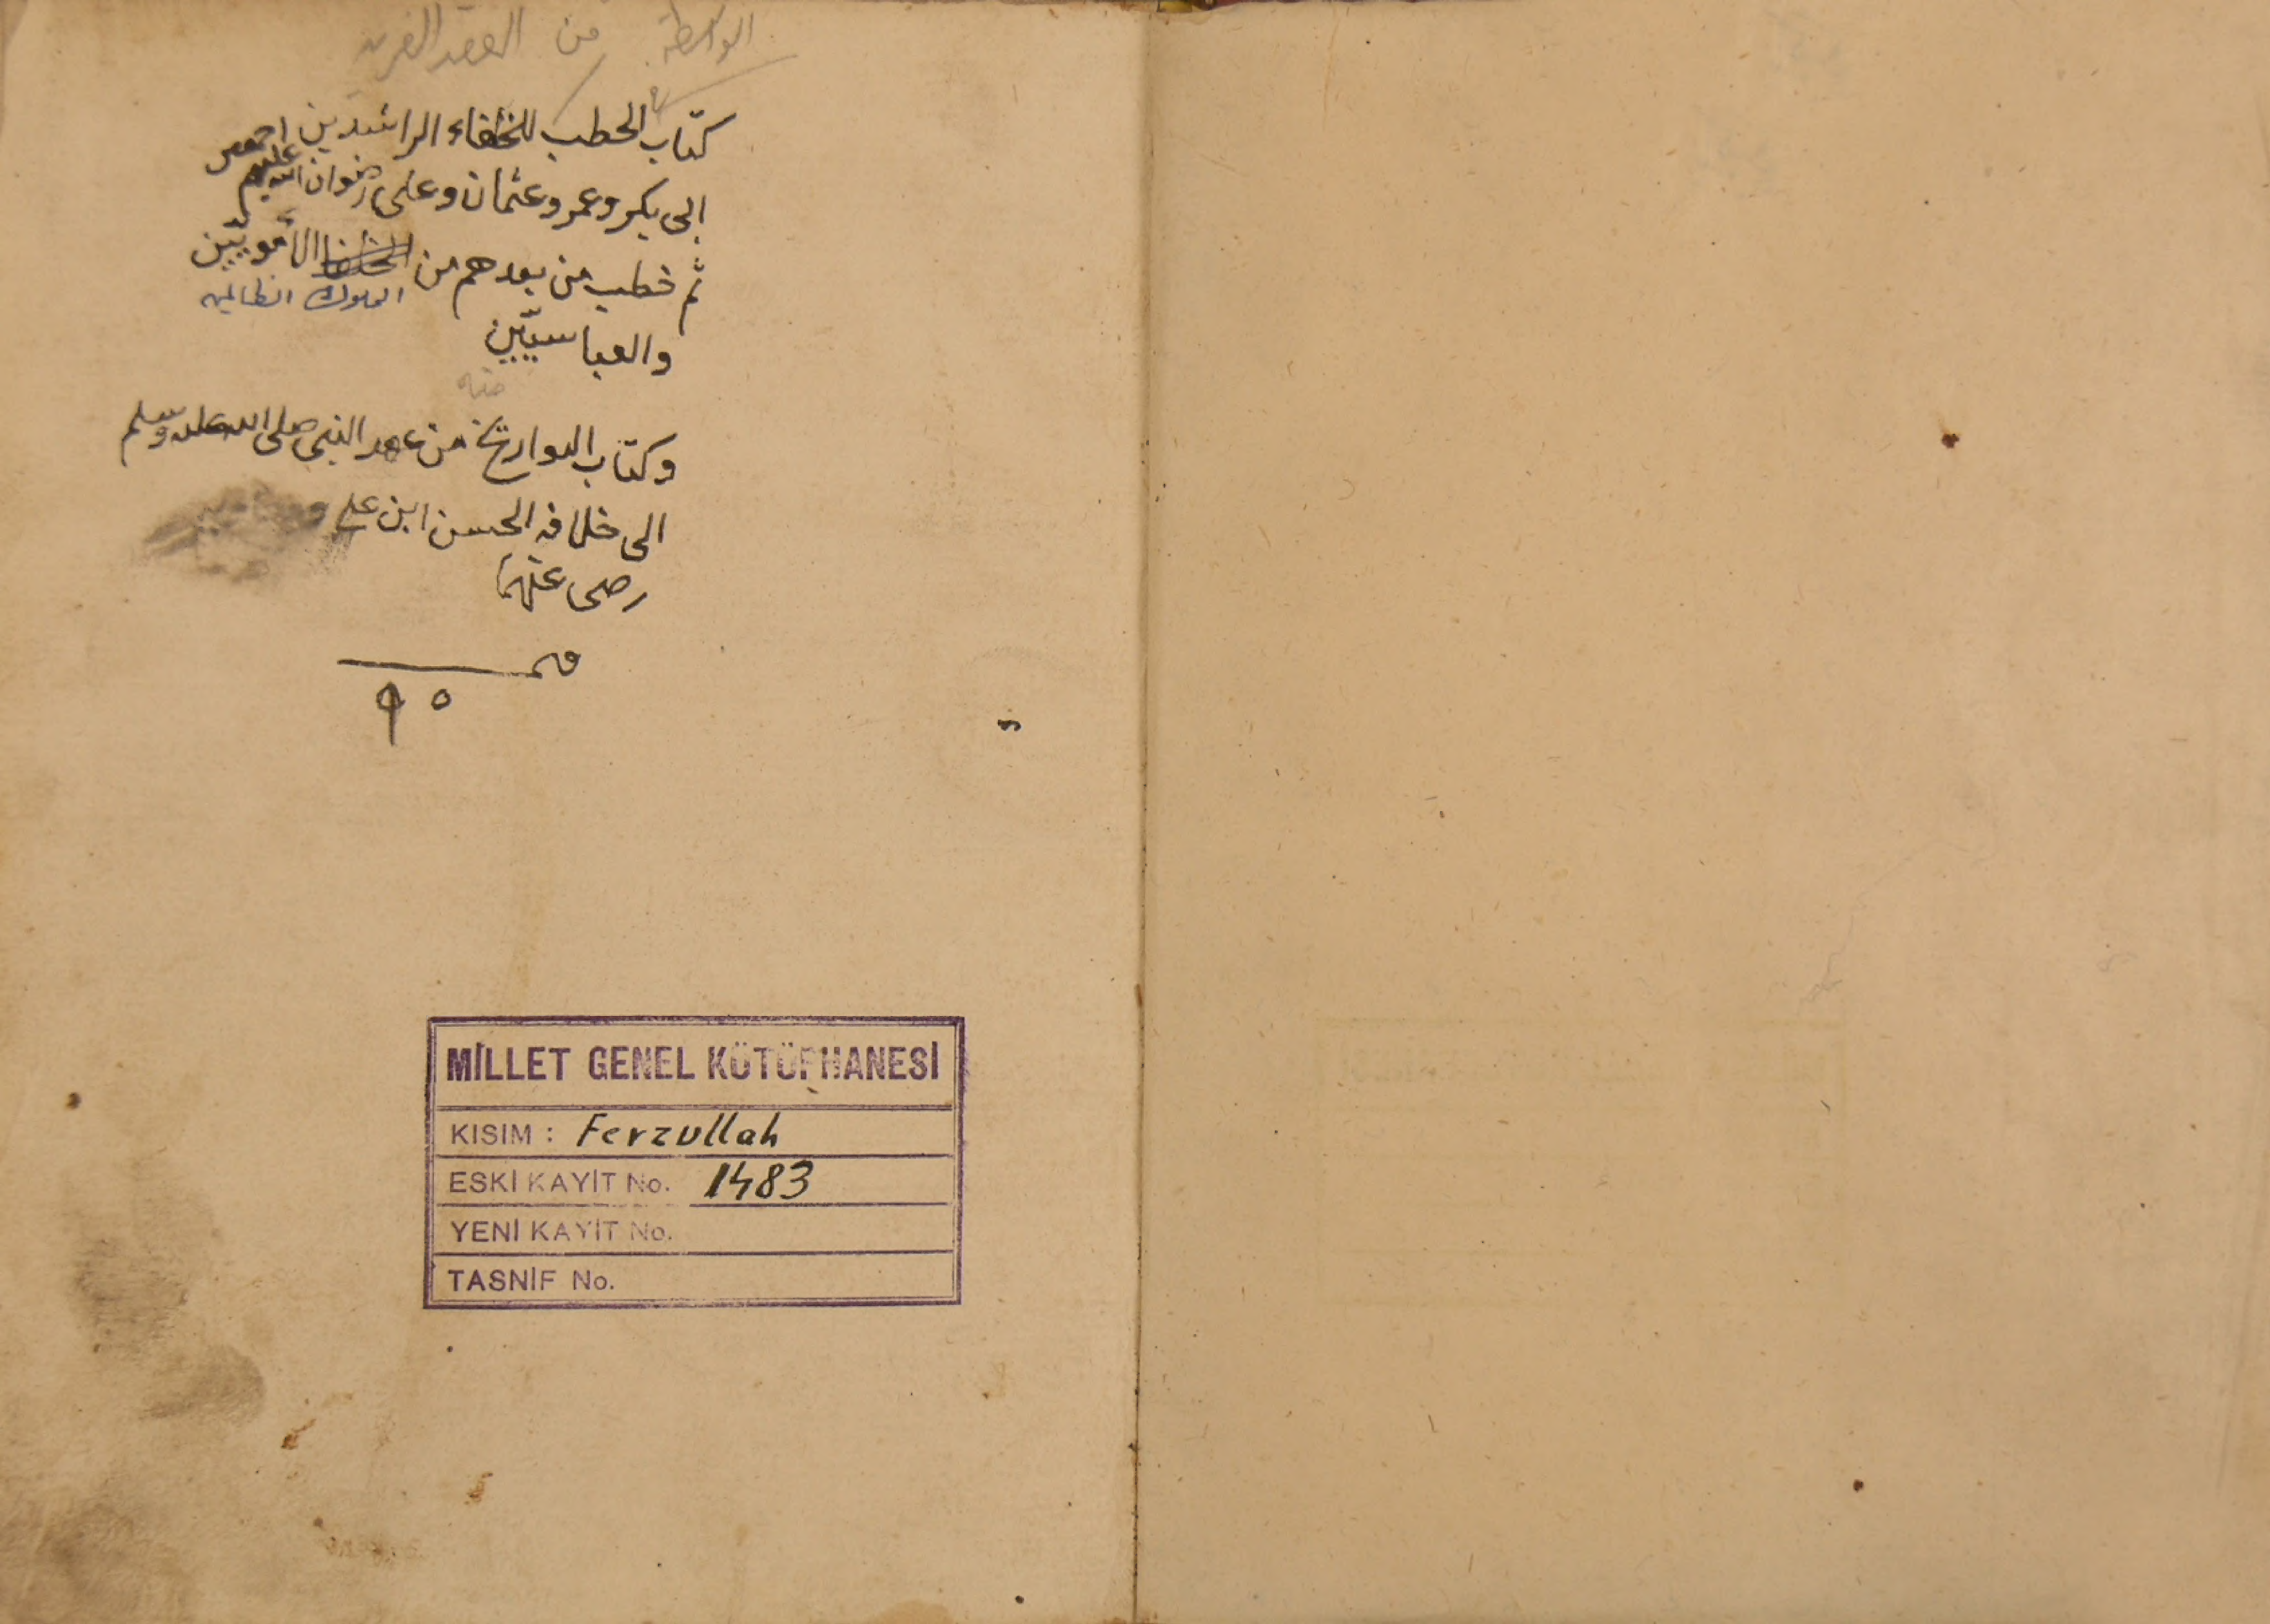 الواسطة من العقد الفريد
كتاب الخطب للخلفاء الراشدين
ابى بكر وعمر وعثمان وعلى رضوان الله عليهم اجمعين
ثم خطب من بعدهم من الخلفا الأمويّين
الملوك الظالمين
والعباسيّين
منه
وكتاب التواريخ من عهد النبى صلى الله عليه وسلم
الى خلافه الحسن ابن على
رضى عنهما
٩٥
MİLLET GENEL KÜTÜPHANESİ
KISIM : Ferzullah
ESKİ KAYİT No. 1483
YENİ KAYİT No.
TASNİF No.